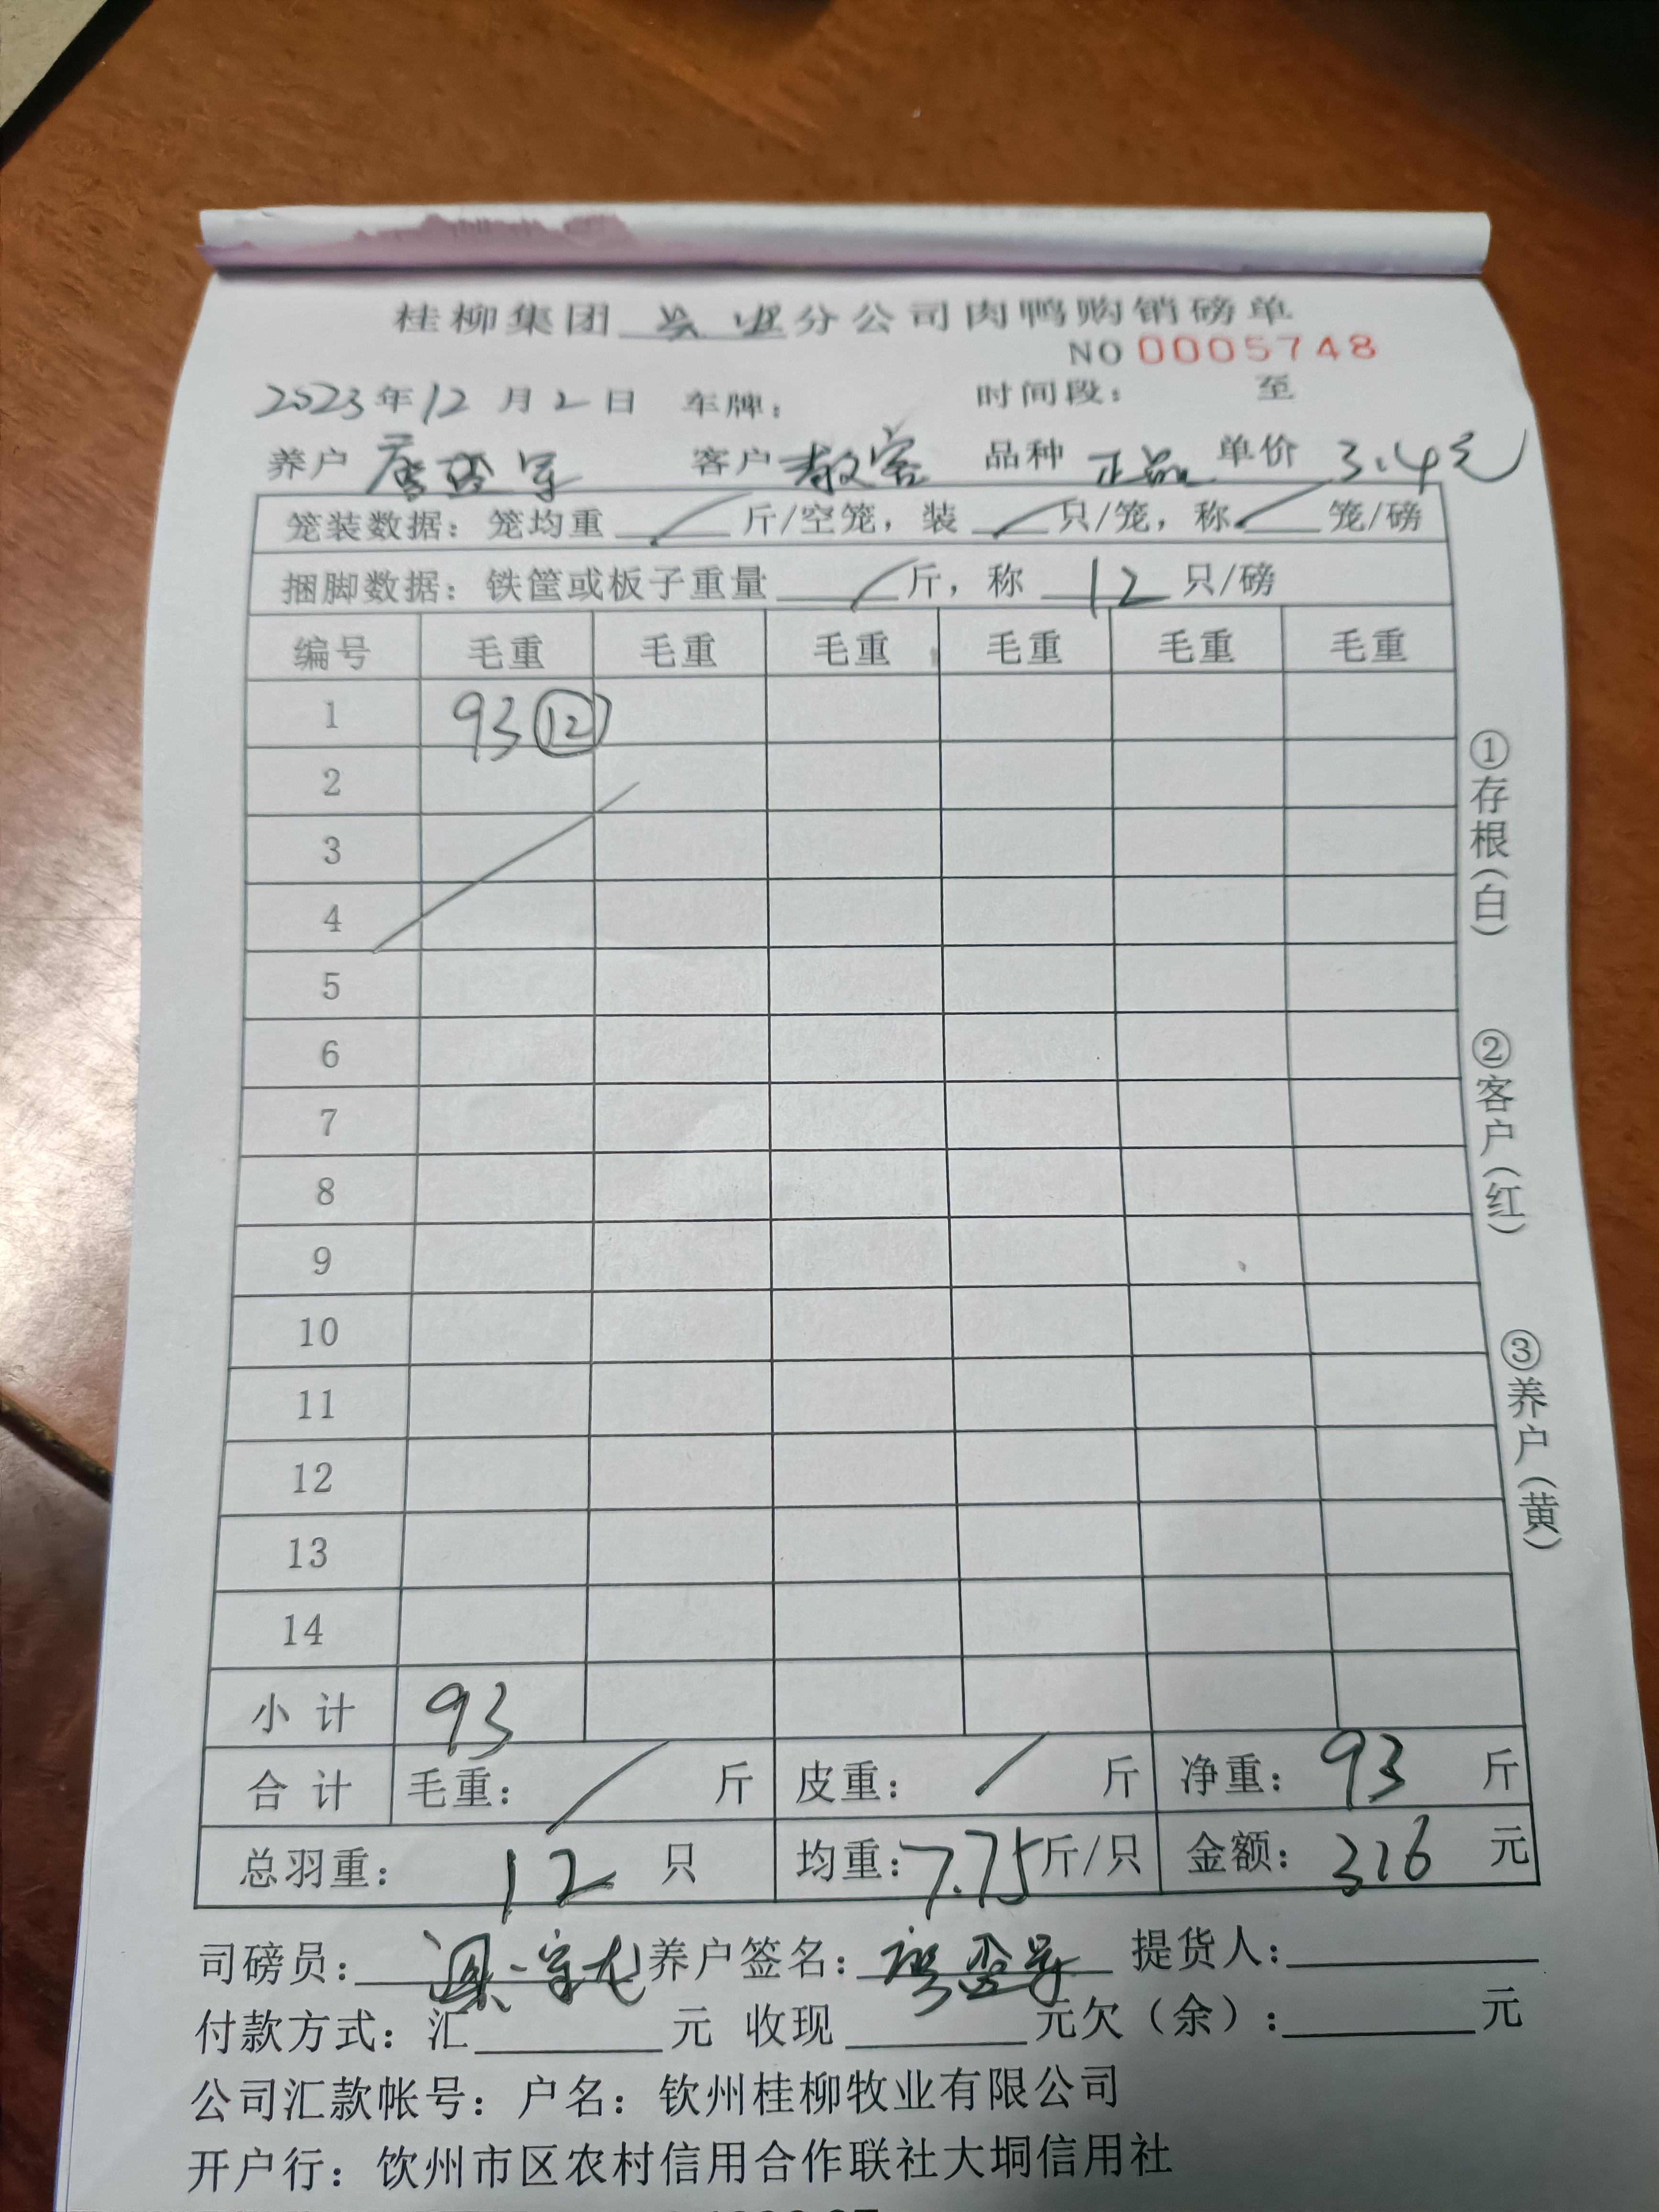 桂柳集团 兴业 分公司肉鸭购销磅单
NO 0005748
2023年12月2日 车牌： 时间段： 至
养户 客户 散客 品种 正品 单价 3.4元
笼装数据：笼均重 / 斤/空笼，装 / 只/笼，称 / 笼/磅
捆脚数据：铁筐或板子重量 / 斤，称 12 只/磅
编号 毛重 毛重 毛重 毛重 毛重 毛重
1 93 ⑫
2
3
4
5
6
7
8
9
10
11
12
13
14
小计 93
合计 毛重： / 斤 皮重： / 斤 净重： 93 斤
总羽重： 12 只 均重：7.75斤/只 金额： 316 元
司磅员： 养户签名： 提货人：
付款方式：汇 元 收现 元欠（余）： 元
公司汇款帐号：户名：钦州桂柳牧业有限公司
开户行：饮州市区农村信用合作联社大垌信用社
①存根（白）
②客户（红）
③养户（黄）